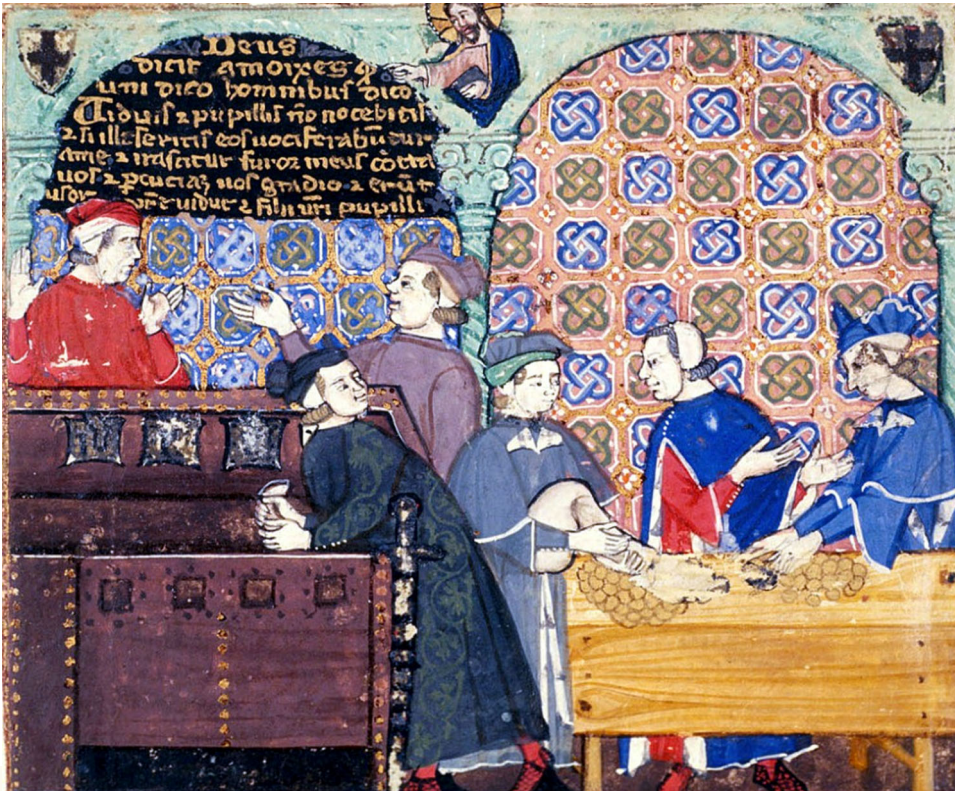 Deus
dicit amoixes q̃
uni dico hominibus dico
Uiduis ⁊ pupillis nō nocebitis
⁊ si illeseritis eos uociferabūtur
Ame ⁊ irascitur furor meus cōtra
uos ⁊ ꝑcuciaz uos gladio ⁊ erūt
uidue ⁊ filii ur̄i pupilli